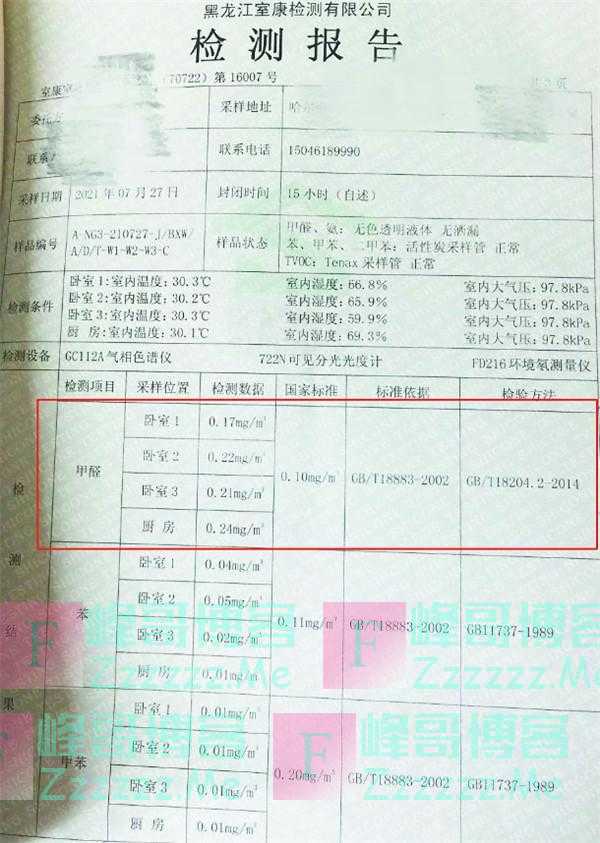 黑龙江室康检测有限公司
检测报告
室康室 (70722) 第 16007 号
采样地址 哈尔
联系 联系电话 15046189990
采样日期 2021 年 07 月 27 日 封闭时间 15 小时（自述）
样品编号 A-NG3-210727-J/BXW/A/D/T-W1-W2-W3-C 样品状态
甲醛、氨：无色透明液体 无洒漏
苯、甲苯、二甲苯：活性炭采样管 正常
TVOC：Tenax 采样管 正常
检测条件
卧室 1：室内温度：30.3℃ 室内湿度：66.8% 室内大气压：97.8kPa
卧室 2：室内温度：30.2℃ 室内湿度：65.9% 室内大气压：97.8kPa
卧室 3：室内温度：30.3℃ 室内湿度：59.9% 室内大气压：97.8kPa
厨 房：室内温度：30.1℃ 室内湿度：69.3% 室内大气压：97.8kPa
检测设备 GC112A 气相色谱仪 722N 可见分光光度计 FD216 环境氡测量仪
检测结果
检测项目 采样位置 检测数据 国家标准 标准依据 检验方法
甲醛 0.10mg/m³ GB/T18883-2002 GB/T18204.2-2014
卧室 1 0.17mg/m³
卧室 2 0.22mg/m³
卧室 3 0.21mg/m³
厨 房 0.24mg/m³
苯 0.11mg/m³ GB/T18883-2002 GB11737-1989
卧室 1 0.04mg/m³
卧室 2 0.05mg/m³
卧室 3 0.02mg/m³
厨 房 0.01mg/m³
甲苯 0.20mg/m³ GB/T18883-2002 GB11737-1989
卧室 1 0.01mg/m³
卧室 2 0.01mg/m³
卧室 3 0.01mg/m³
厨 房 0.01mg/m³
F 峰哥博客
Zzzzzz.Me
F 峰哥博客
Zzzzzz.Me
F 峰哥博客
Zzzzzz.Me
F 峰哥博客
Zzzzzz.Me